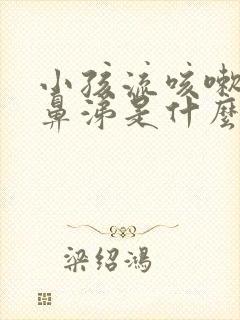 小孩流咳嗽
鼻涕是什麼
梁绍鴻